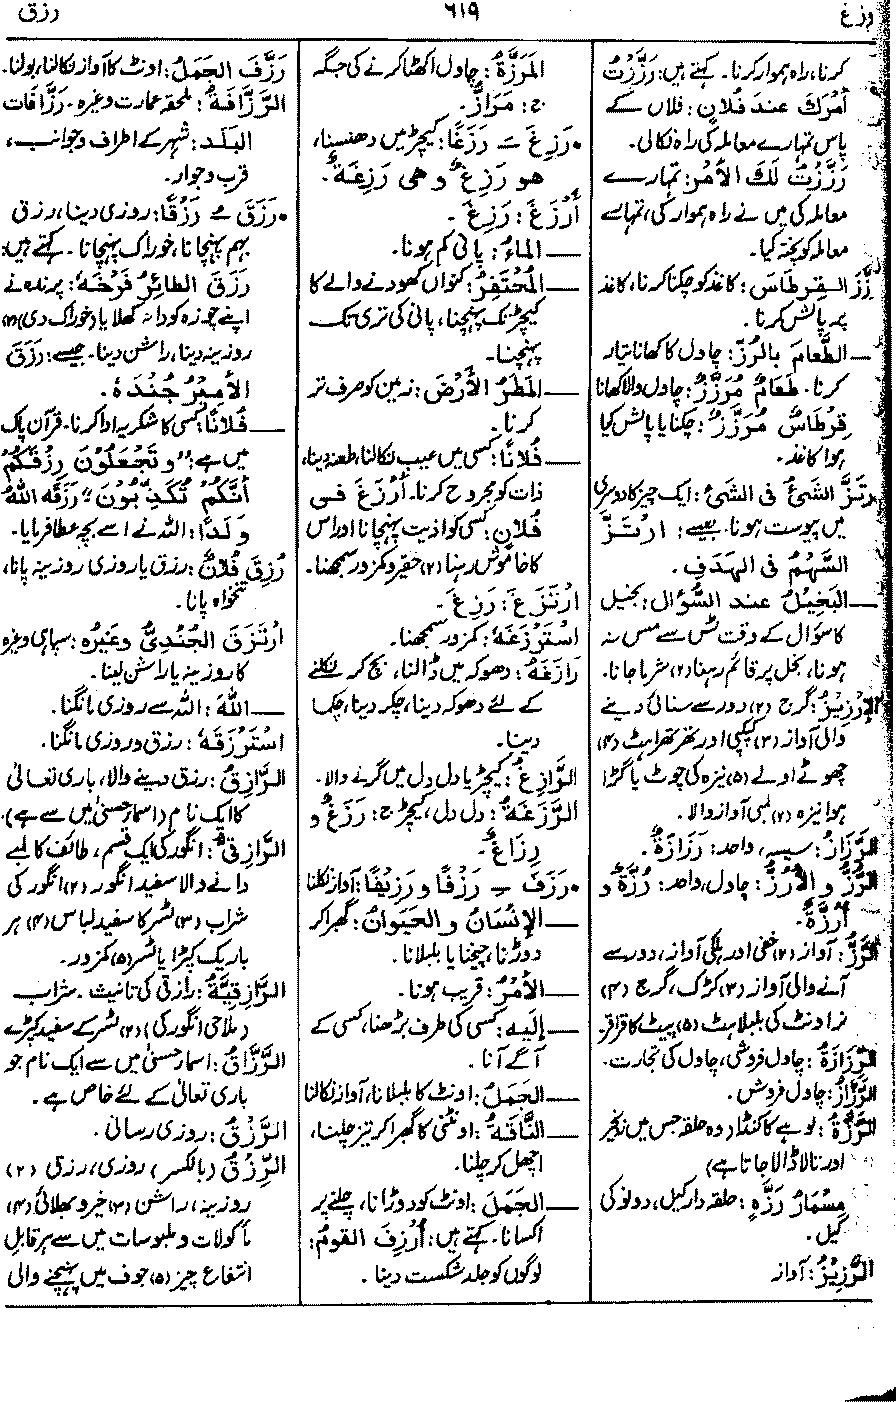 رزغ
٦١٩
رزق
کرنا، راہ ہموار کرنا۔ کہتے ہیں: رَزَّزْتُ
أَمْرَكَ عند فُلَانٍ: فلاں کے
پاس تمہارے معاملہ کی راہ نکالی۔
رَزَّزْتُ لَكَ الأَمْرَ: تمہارے
معاملہ کی میں نے راہ ہموار کی، تمہارے
معاملہ کو پختہ کیا۔
رَزَّزَ القِرطَاسَ: کاغذ کو چکنا کرنا، کاغذ
پر پالش کرنا۔
— الطَّعَامَ بالرُّزِّ: چاول کا کھانا تیار
کرنا۔ طَعَامٌ مُرَزَّزٌ: چاول والا کھانا
قِرْطَاسٌ مُرَزَّزٌ: چکنا یا پالش کیا
ہوا کاغذ۔
ارتَزَّ الشَّيْءُ فی الشَّيْءِ: ایک چیز کا دوسری
میں پیوست ہونا۔ جیسے: ارْتَزَّ
السَّهْمُ فی الهَدَفِ۔
— البَخِيْلُ عند السُّؤَالِ: بخیل
کا سوال کے وقت ٹس سے مس نہ
ہونا، بخل پر قائم رہنا (۲) شرما جانا۔
الإِرْزِيْزُ: گرج (۲) دور سے سنائی دینے
والی آواز (۳) کپکپی اور تھرتھراہٹ (۴)
چھوٹے اولے (۵) نیزہ کی چوٹ یا گڑا
ہوا نیزہ (۶) لمبی آواز والا۔
الرَّزَازُ: سیسہ، واحد: رَزَازَةٌ۔
الرُّزُّ و الأُرْزُ: چاول، واحد: رُزَّةٌ و
أُرْزَةٌ۔
الرِّزُّ: آواز (۲) خفی اور ہلکی آواز، دور سے
آنے والی آواز (۳) کڑک، گرج (۴)
نر اونٹ کی بلبلاہٹ (۵) پیٹ کا قراقر۔
الرِّزَازَةُ: چاول فروشی، چاول کی تجارت۔
الرَّزَّازُ: چاول فروش۔
الرَّزَّةُ: لوہے کا کنڈا (وہ حلقہ جس میں زنجیر
اور تالا ڈالا جاتا ہے)
مِسْمَارُ رَزَّةٍ: حلقہ دار کیل، دو نوکی
کیل۔
الرَّزِيْزُ: آواز
المَرَزَّةُ: چاول اکٹھا کرنے کی جگہ
ج: مَرَازُّ۔
• رَزِغَ — رَزَغًا: کیچڑ میں دھنسنا،
هو رَزِغٌ و هی رَزِغَةٌ۔
أَرْزَغَ: رَزِغَ۔
— المَاءُ: پانی کم ہونا۔
— المُحْتَفِرُ: کنواں کھودنے والے کا
کیچڑ تک پہنچنا، پانی کی تری تک
پہنچنا۔
— المَطَرُ الأَرْضَ: زمین کو صرف تر
کرنا۔
— فُلَانًا: کسی میں عیب نکالنا، طعنہ دینا،
ذات کو مجروح کرنا۔ أَرْزَغَ فی
فُلَانٍ: کسی کو اذیت پہنچانا اور اس
کا خاموش رہنا (۲) حقیر و کمزور سمجھنا۔
ارْتَزَغَ: رَزِغَ۔
اسْتَرْزَغَهُ: کمزور سمجھنا۔
رَازَغَهُ: دھوکہ میں ڈالنا، بچ کر نکلنے
کے لئے دھوکہ دینا، چکر دینا، چکما
دینا۔
الرَّازِغُ: کیچڑ یا دلدل میں گرنے والا۔
الرَّزَغَةُ: دلدل، کیچڑ ج: رَزَغٌ و
رِزَاغٌ۔
• رَزَفَ — رَزْفًا و رَزِيْفًا: آواز نکلنا
— الإِنْسَانُ و الحَيَوَانُ: گھبرا کر
دوڑنا، چیخنا یا بلبلانا۔
— الأَمْرُ: قریب ہونا۔
— إِلَيهِ: کسی کی طرف بڑھنا، کسی کے
آگے آنا۔
— الجَمَلُ: اونٹ کا بلبلانا، آواز نکالنا
— النَّاقَةُ: اونٹنی کا گھبرا کر تیز چلنا،
اچھل کر چلنا۔
— الجَمَلَ: اونٹ کو دوڑانا، چلنے پر
اکسانا۔ کہتے ہیں: أُرْزِفَ القومُ:
لوگوں کو جلد شکست دینا۔
رَزَّفَ الجَمَلُ: اونٹ کا آواز نکالنا، بولنا۔
الرَّزَّافَةُ: ملحقہ عمارت وغیرہ۔ رَزَّافَات
البَلَد: شہر کے اطراف و جوانب،
قرب و جوار۔
• رَزَقَ — رَزْقًا: روزی دینا، رزق
بہم پہنچانا، خوراک پہنچانا۔ کہتے ہیں:
رَزَقَ الطَائِرُ فَرْخَهُ: پرندہ نے
اپنے چوزہ کو دانہ کھلایا (خوراک دی) (۲)
روزینہ دینا، راشن دینا۔ جیسے: رَزَقَ
الأَمِيْرُ جُنْدَهُ۔
— فُلَانًا: کسی کا شکریہ ادا کرنا۔ قرآن پاک
میں ہے: "وَتَجْعَلُوْنَ رِزْقَكُمْ
أَنَّكُمْ تُكَذِّبُوْنَ" رَزَقَهُ اللهُ
وَلَدًا: اللہ نے اسے بچہ عطا فرمایا۔
رُزِقَ فُلَانٌ: رزق یا روزی روزینہ پانا،
تنخواہ پانا۔
ارْتَزَقَ الجُنْدِيُّ وغَيْرُه: سپاہی وغیرہ
کا روزینہ یا راشن لینا۔
— اللهَ: اللہ سے روزی مانگنا۔
اسْتَرْزَقَهُ: رزق و روزی مانگنا۔
الرَّازِقُ: رزق دینے والا، باری تعالیٰ
کا ایک نام (اسماء حسنیٰ میں سے ہے)۔
الرَّازِقِيُّ: انگور کی ایک قسم، طائف کا لمبے
دانے والا سفید انگور (۲) انگور کی
شراب (۳) لنڑ کا سفید لباس (۴) ہر
باریک کپڑا یا لنڑ (۵) کمزور۔
الرَّازِقِيَّةُ: رازقی کی تانیث۔ شراب
(ملاحی انگور کی) (۲) لنڑ کے سفید کپڑے
الرَّزَّاقُ: اسماء حسنیٰ میں سے ایک نام جو
باری تعالیٰ کے لئے خاص ہے۔
الرَّزْقُ: روزی رسانی۔
الرِّزْقُ (بالکسر) روزی، رزق (۲)
روزینہ، راشن (۳) خیر و بھلائی (۴)
مأکولات و ملبوسات میں سے ہر قابلِ
انتفاع چیز (۵) جوف میں پہنچنے والی